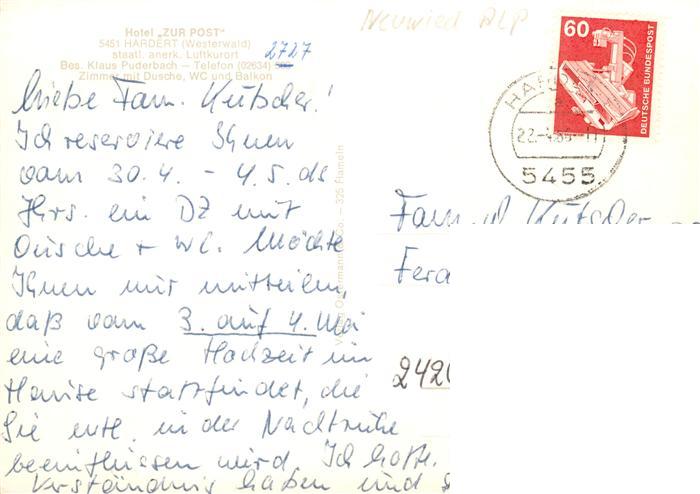 Neuwied RLP
Hotel „ZUR POST"
5451 HARDERT (Westerwald)
staatl. anerk. Luftkurort
Bes. Klaus Puderbach – Telefon (02634)
2727
Zimmer mit Dusche, WC und Balkon
60
DEUTSCHE BUNDESPOST
5455
Liebe Fam. Kutscher!
Ich reserviere Ihnen
vom 30.4. - 4.5. ds
Jhrs. ein DZ mit
Dusche + WC. Möchte
Ihnen nur mitteilen,
daß vom 3. auf 4. Mai
eine große Hochzeit im
Hause stattfindet, die
Sie evtl. in der Nachtruhe
beeinflussen wird. Ich hoffe,
Verständnis haben und
Fam. Kutscher
Fera
242